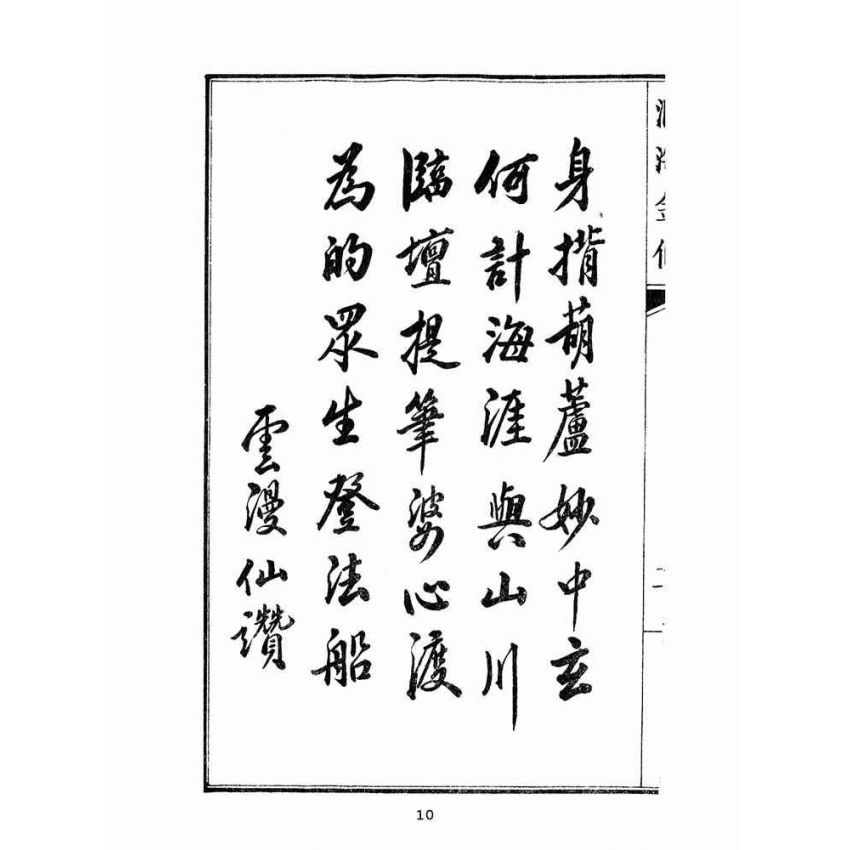 身揹葫蘆妙中玄
何計海涯與山川
臨壇提筆婆心渡
為的眾生登法船
雲漫仙讚
10